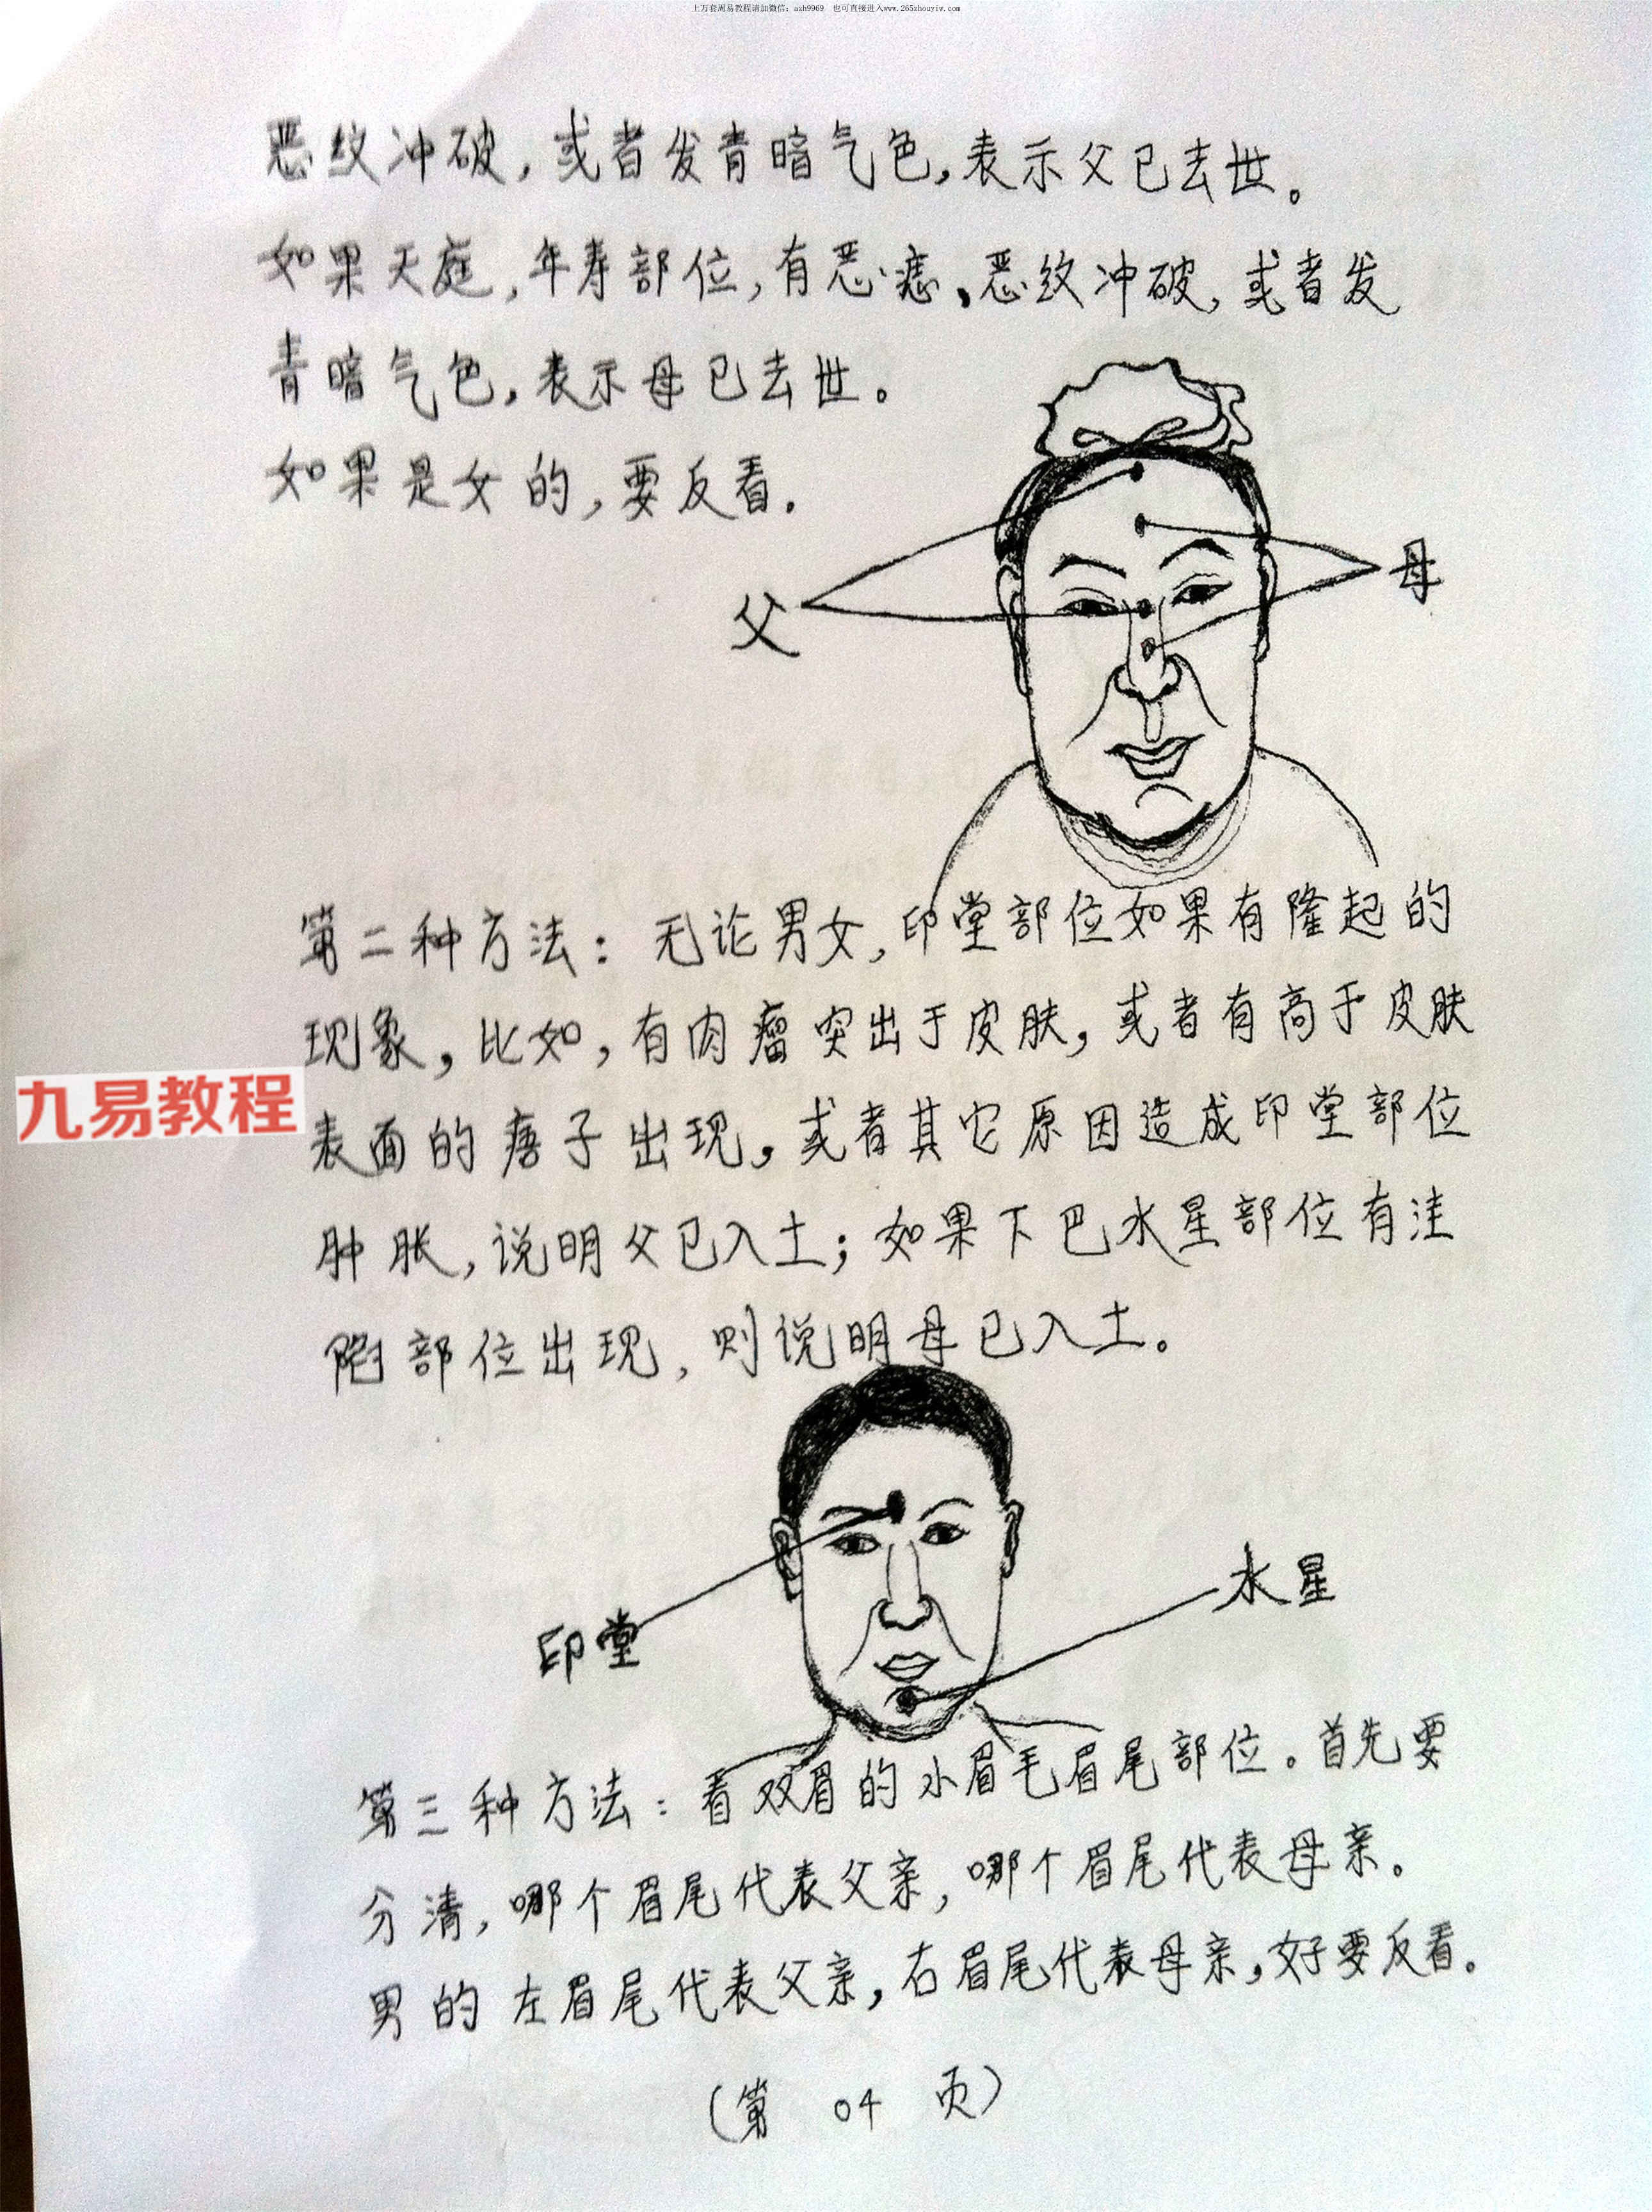 上万套周易教程请加微信：azh9969 也可直接进入www.265zhouyiw.com
恶纹冲破，或者发青暗气色，表示父已去世。
如果天庭，年寿部位，有恶痣，恶纹冲破，或者发
青暗气色，表示母已去世。
如果是女的，要反看。
父
母
第二种方法：无论男女，印堂部位如果有隆起的
现象，比如，有肉瘤突出于皮肤，或者有高于皮肤
九易教程
表面的痦子出现，或者其它原因造成印堂部位
肿胀，说明父已入土；如果下巴水星部位有洼
陷部位出现，则说明母已入土。
印堂
水星
第三种方法：看双眉的小眉毛眉尾部位。首先要
分清，哪个眉尾代表父亲，哪个眉尾代表母亲。
男的左眉尾代表父亲，右眉尾代表母亲，好要反看。
（第 04 页）